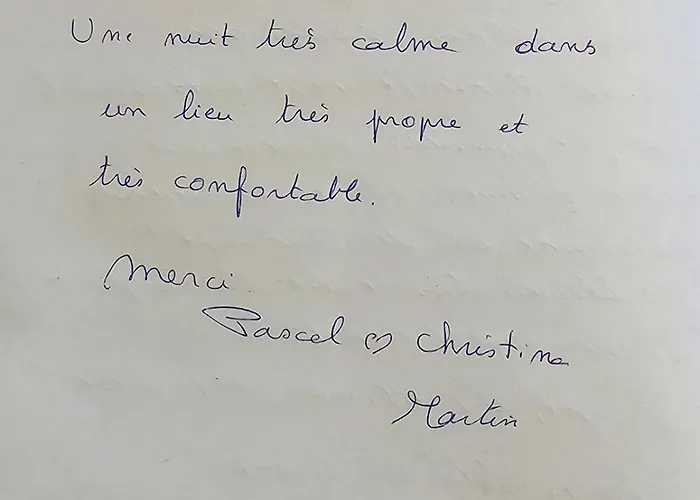 Une nuit très calme dans
un lieu très propre et
très confortable.
Merci.
Pascal ♡ Christine
Martin